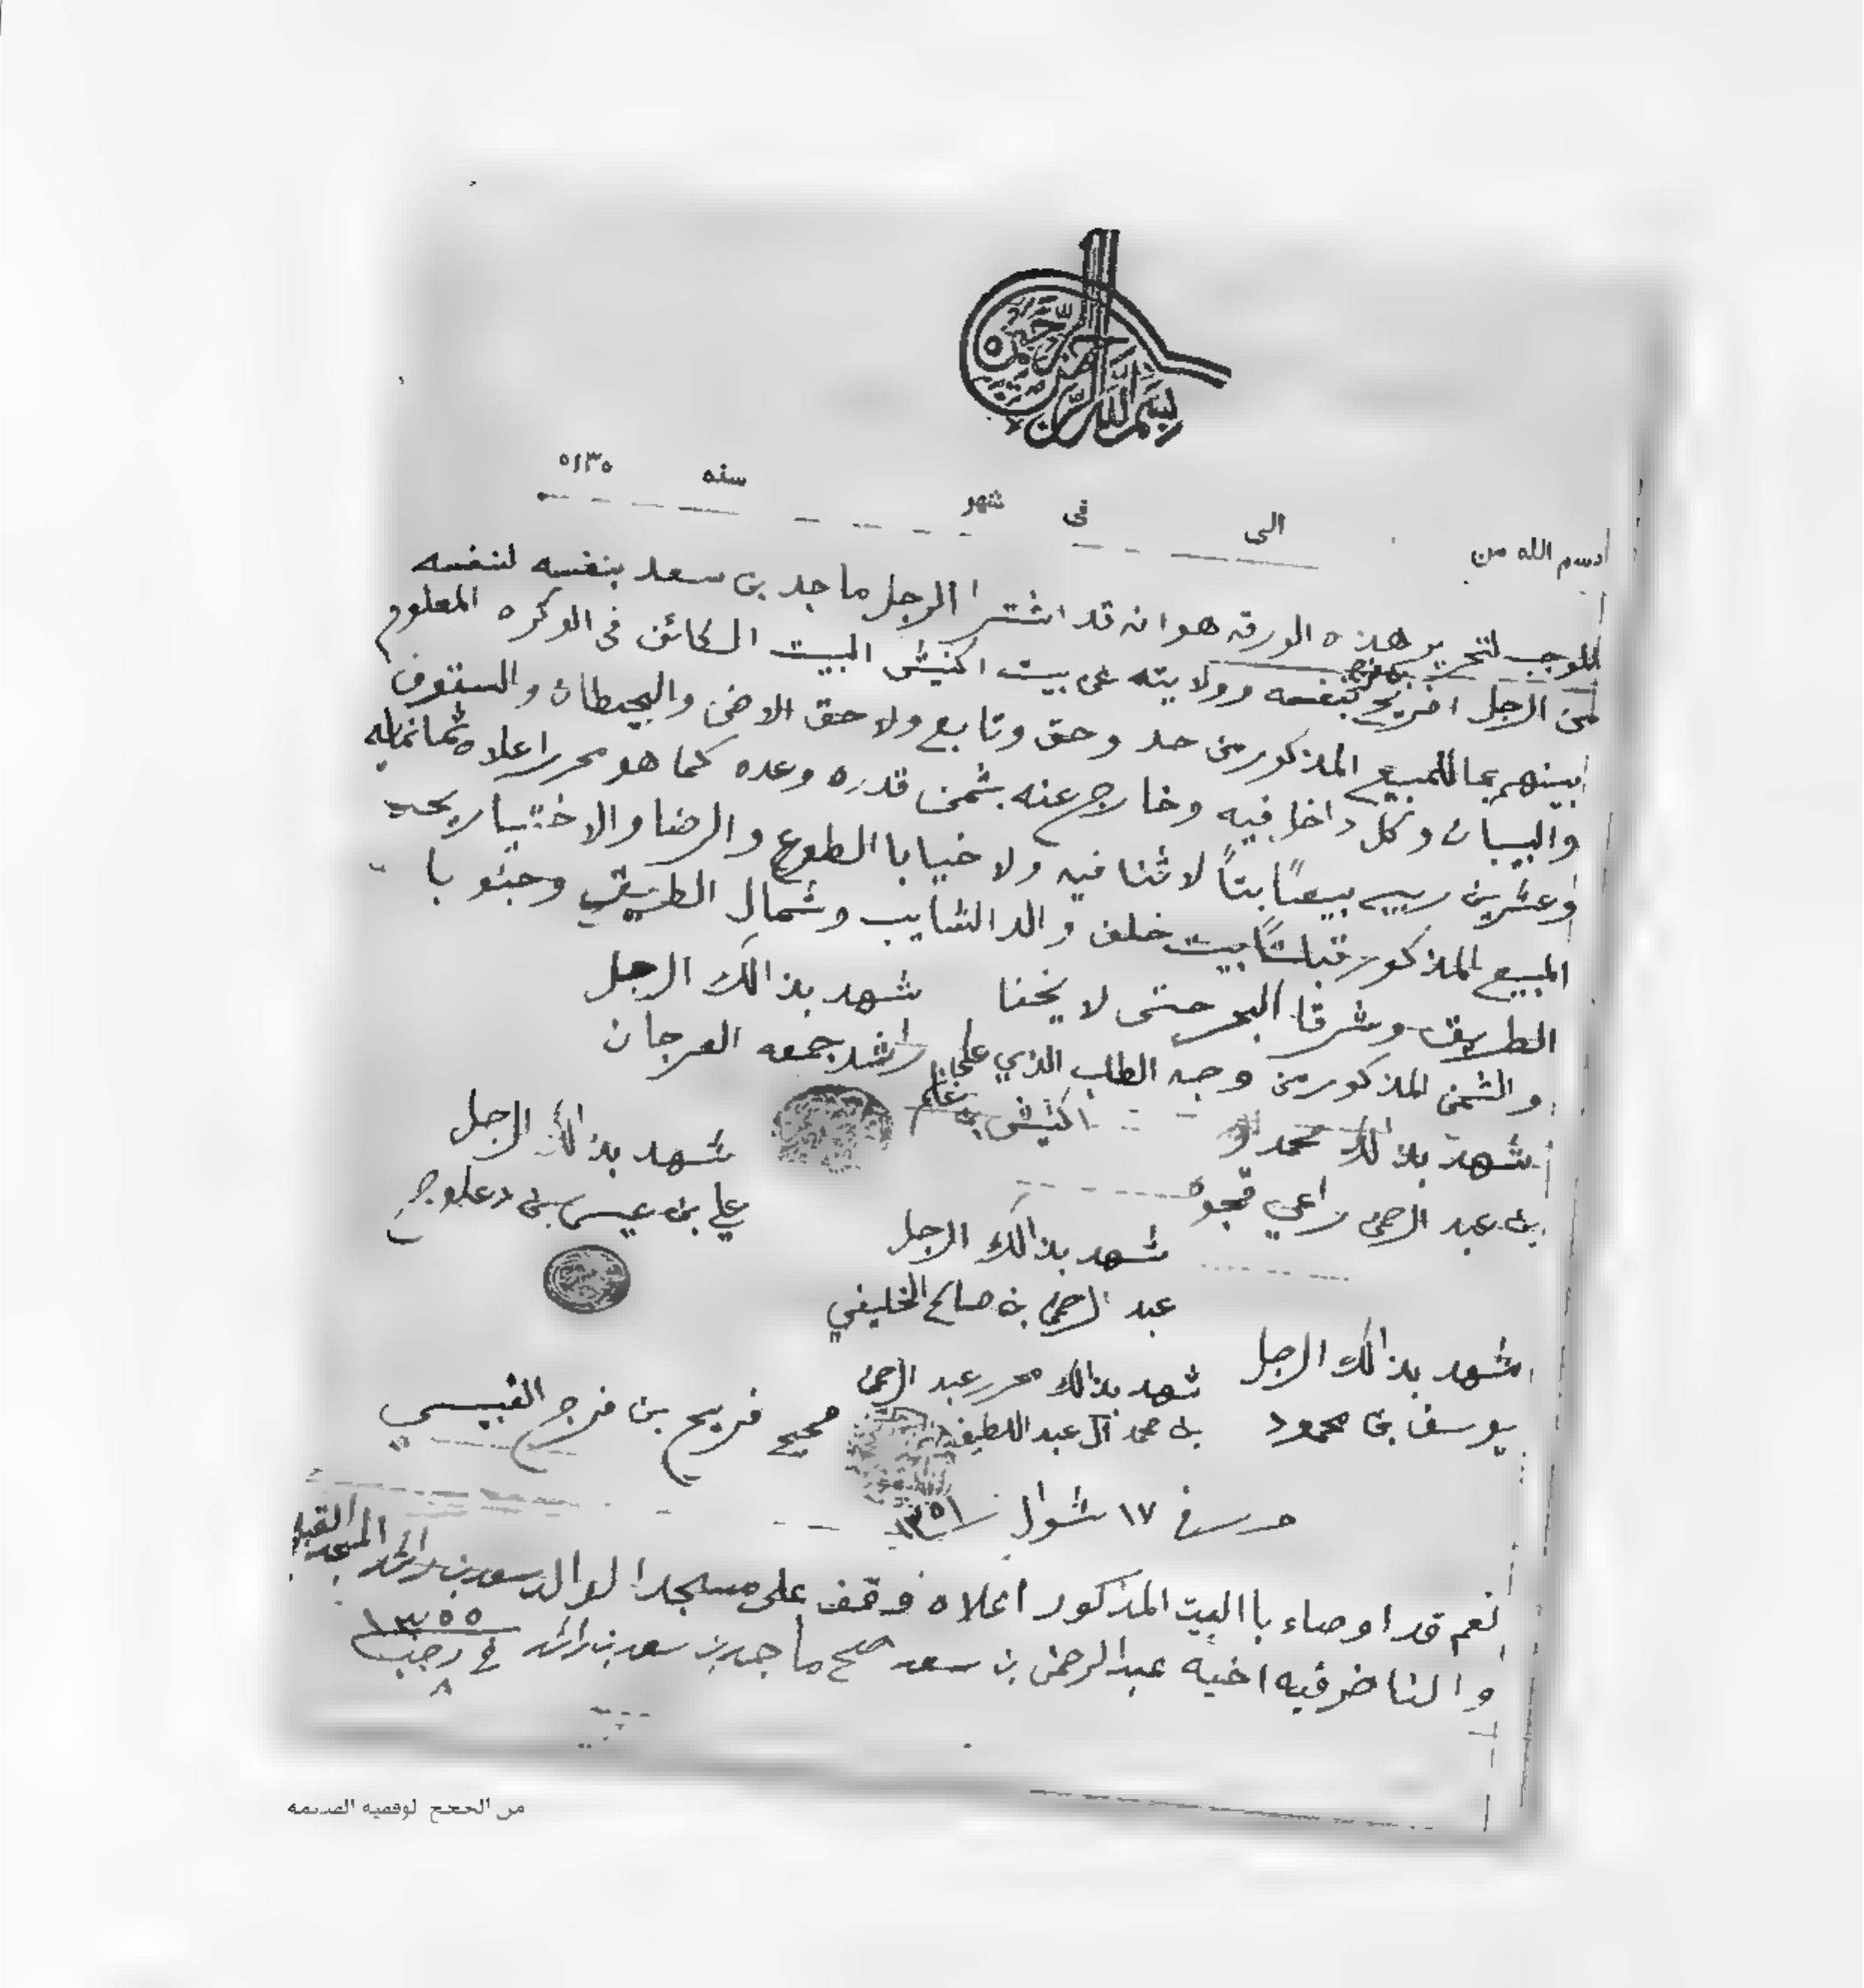 بسم الله الرحمن الرحيم
بسم الله من الى فى شهر سنه ١٣٥٥
الموجب لتحرير هذه الورقه هو انه قد اشترا الرجل ماجد بن سعد بنفسه لنفسه
من الرجل افريج بن فرج بنفسه وولايته عن بيت اكنيش البيت الكائن في الوكره المعلوم
بينهم بما للمبيع المذكور من حد وحق وتابع ولاحق الارض والحيطان والسقوف
والبيبان وكل داخل فيه وخارج عنه بثمن قدره وعده كما هو محرر اعلاه ثمانمايه
وعشرين ربيه بيعاً بتاً لا ثنا فيه ولا خيا باالطوع والرضا والاختيار يحد
المبيع المذكور قبلتاً بيت خلف والد الشايب وشمال الطريق وجنوبا
الطريق وشرقا البحر حتى لا يخفا
والثمن المذكور من وجه الطلب الذي على اكنيش بن غانم
شهد بذالك الرجل
راشد جمعه العرجان
شهد بذالك محمد
بن عبد الرحمن راعي قحوه
شهد بذالك الرجل
علي بن عيسى بن دعلوج
شهد بذالك الرجل
عبد الرحمن بن صالح الخليفي
شهد بذالك الرجل
يوسف بن محمود
شهد بذالك محرر عبد الرحمن
بن محمد آل عبد اللطيف
صحيح فريج بن فرج القبيسي
حرر في ١٧ شوال ١٣٥١
نعم قد اوصاء باالبيت المذكور اعلاه وقف على مسجد الوالد سعد بن راشد المسجد القبلي
والناضر فيه اخيه عبد الرحمن بن سعد صح ماجد بن سعد بن راشد في رجب ١٣٥٥
٨
من الحجج الوقفية القديمة